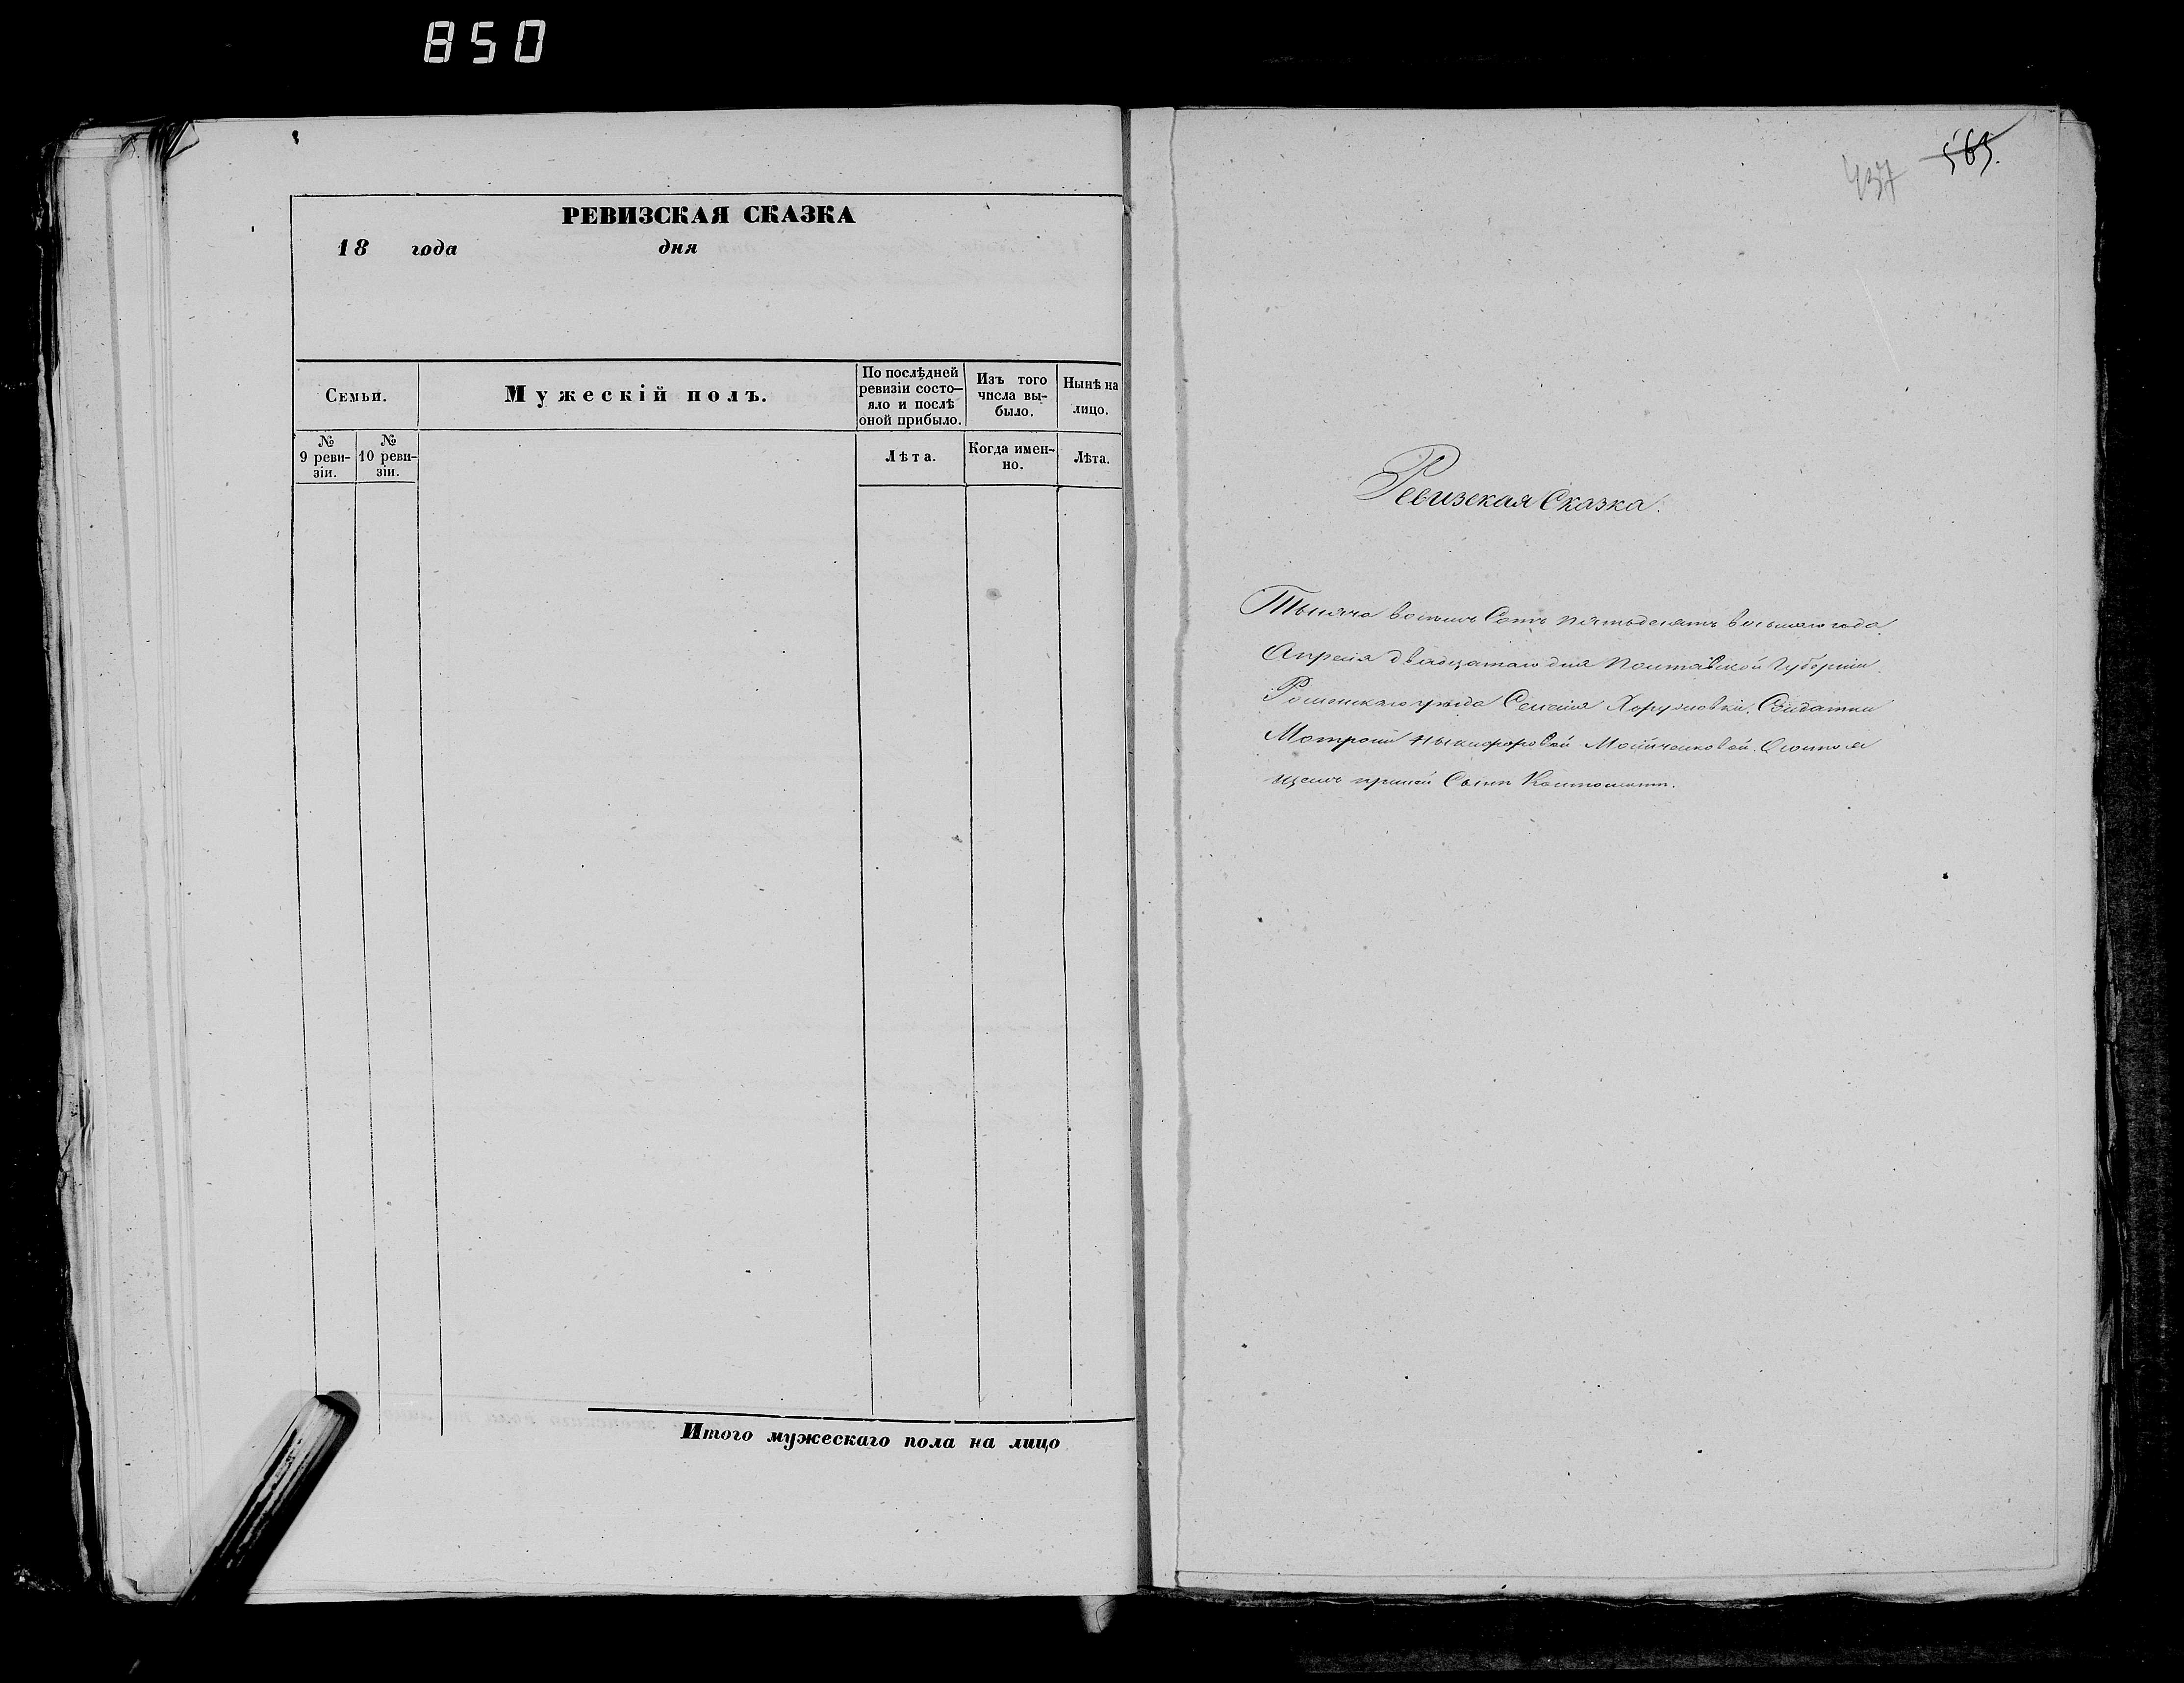 850
РЕВИЗСКАЯ СКАЗКА
18 года дня
Семьи.
Мужескій полъ.
По послѣдней ревизіи состо-
яло и послѣ оной прибыло.
Изъ того числа вы-
было.
Нынѣ на лицо.
№ 9 реви-
зіи.
№ 10 реви-
зіи.
Лѣта.
Когда имен-
но.
Лѣта.
Итого мужескаго пола на лицо
565.
437
Ревизская Сказка.
Тысяча восемь Сотъ пятьдесятъ восьмаго года
Апреля двадцатаго дня Полтавской Губерніи
Роменскаго уезда Селенія Хоружовки, Солдатки
Мотроны
сынъ